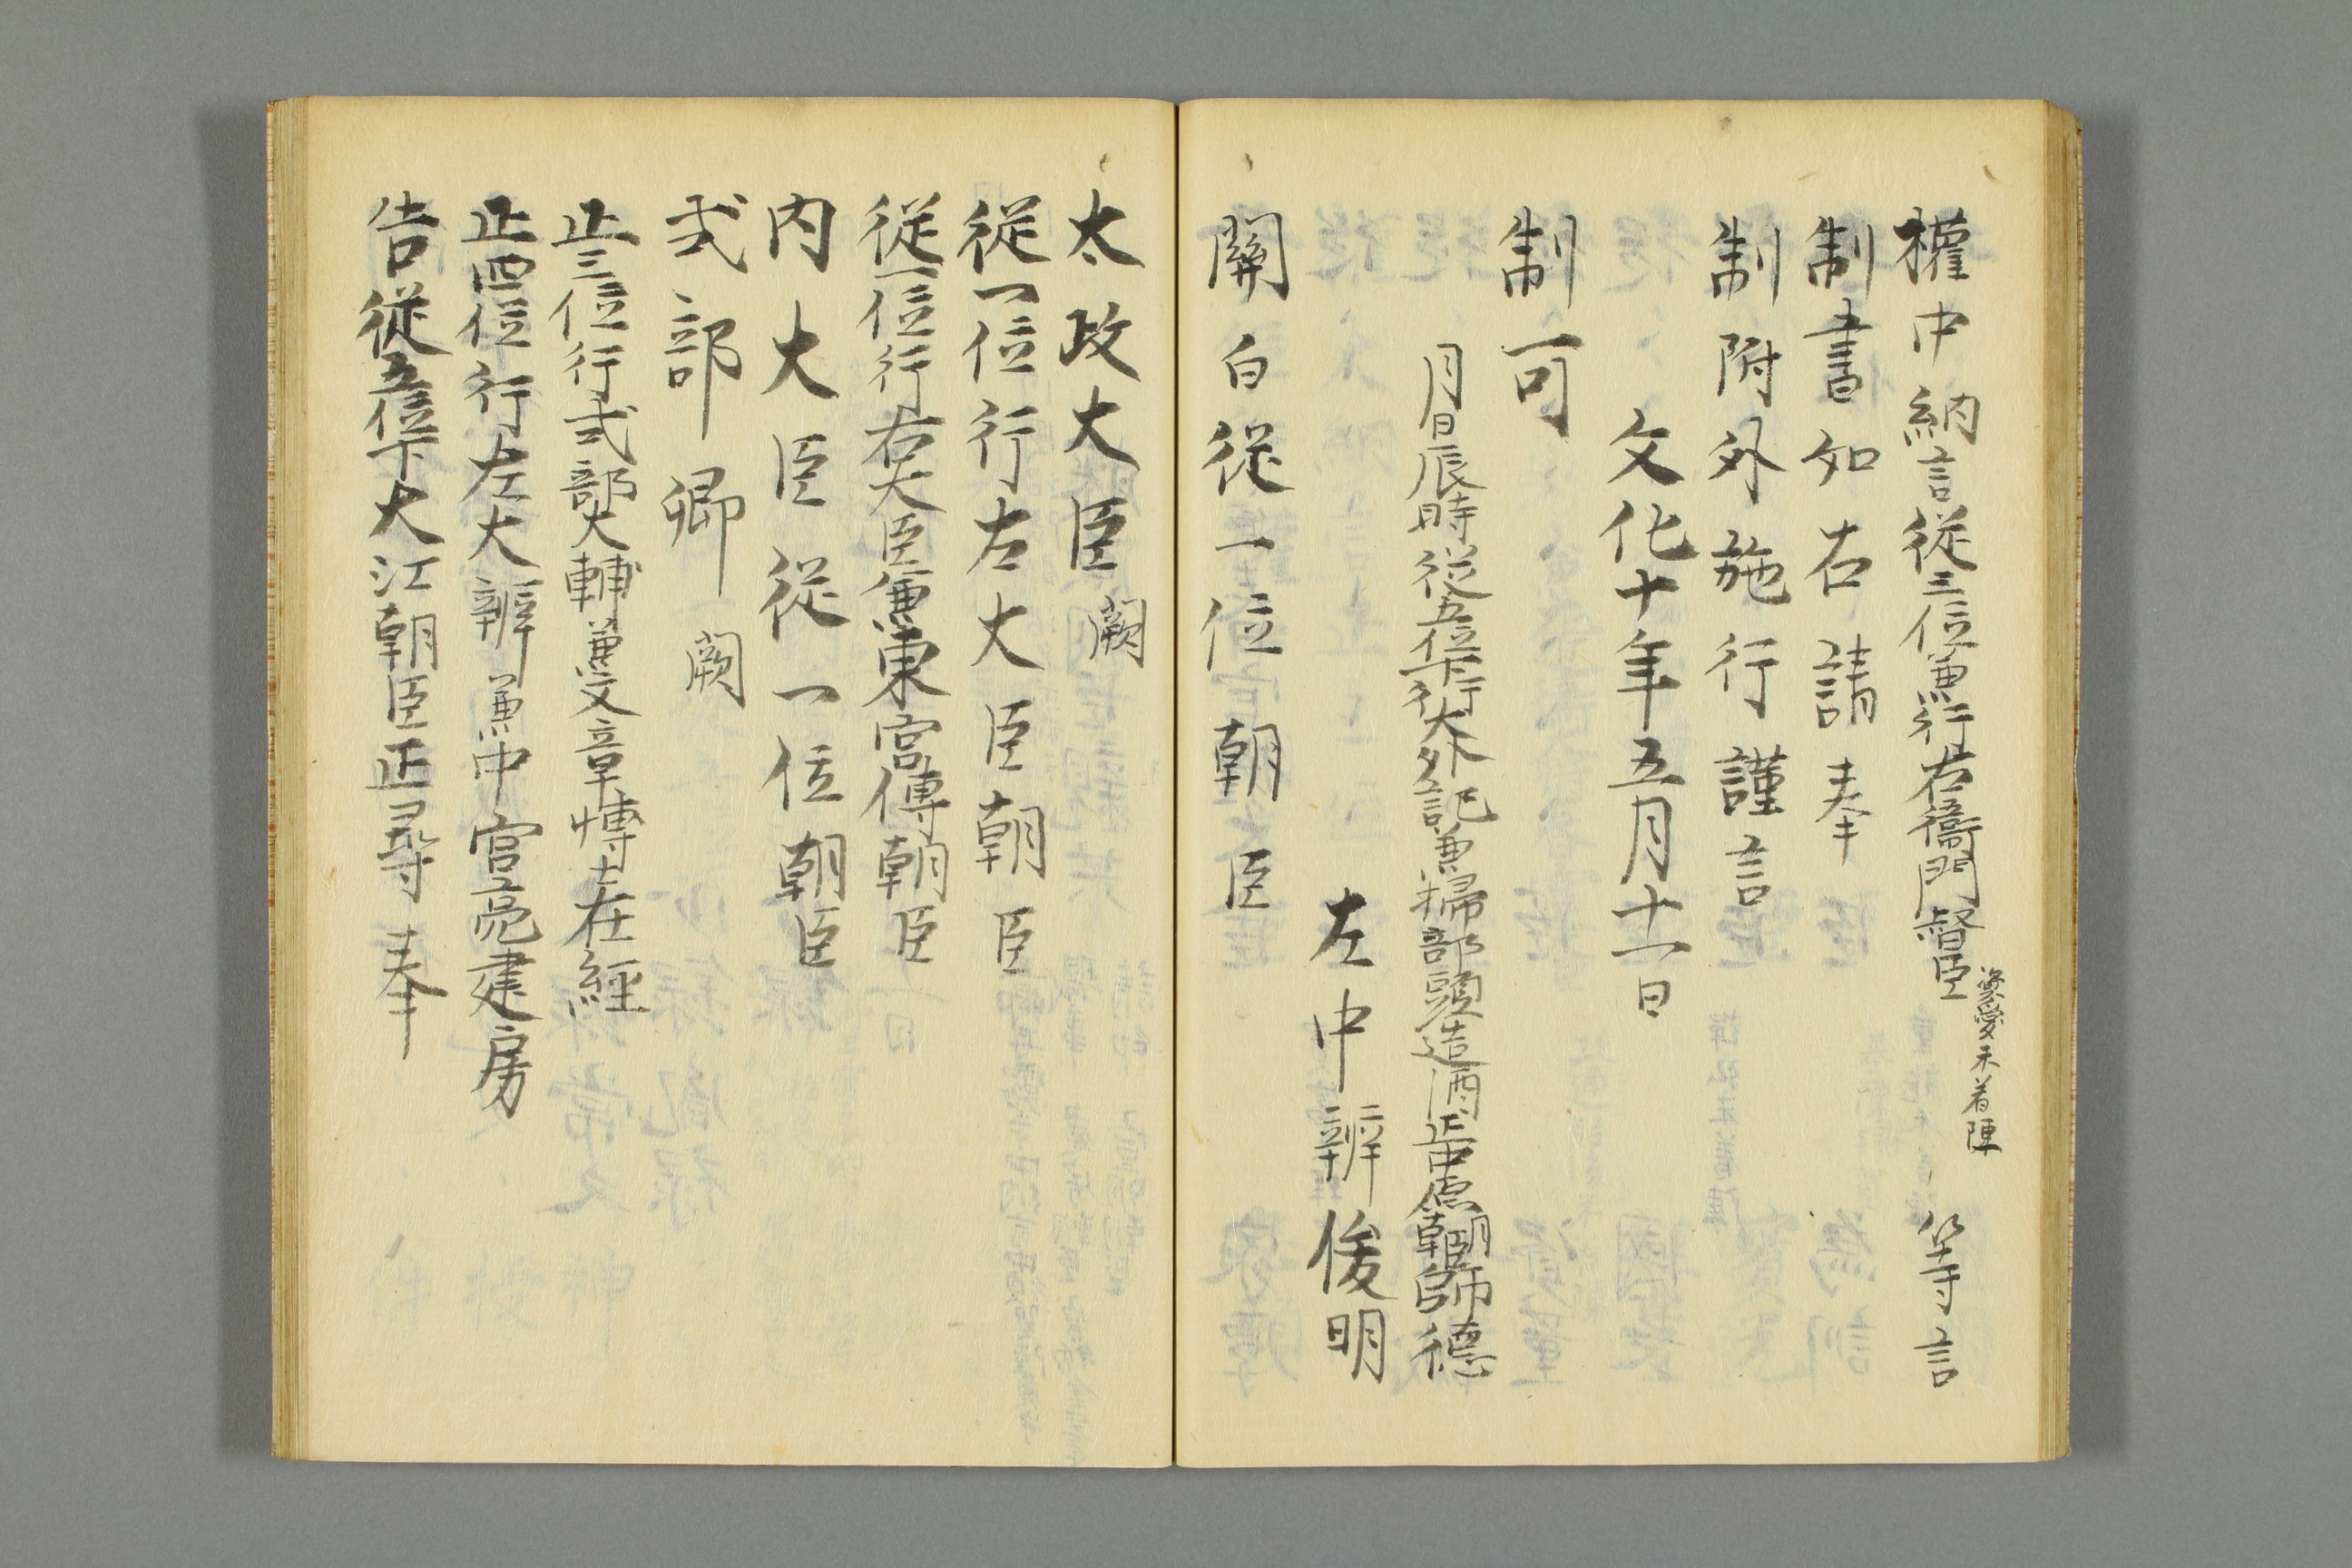 權中納言從三位兼行右衞門督臣 資愛未着陣 等言
制書如右請奉
制附外施行謹言
文化十年五月十一日
制可
月日辰時從五位下行大外記兼掃部頭造酒正中原朝臣師德
左中辨俊明
關白從一位朝臣
太政大臣 闕
從一位行左大臣朝臣
從一位行右大臣兼東宮傅朝臣
内大臣從一位朝臣
式部卿 闕
正三位行式部大輔兼文章博士在經
正四位行左大辨兼中宮亮建房
告從五位下大江朝臣正尋奉